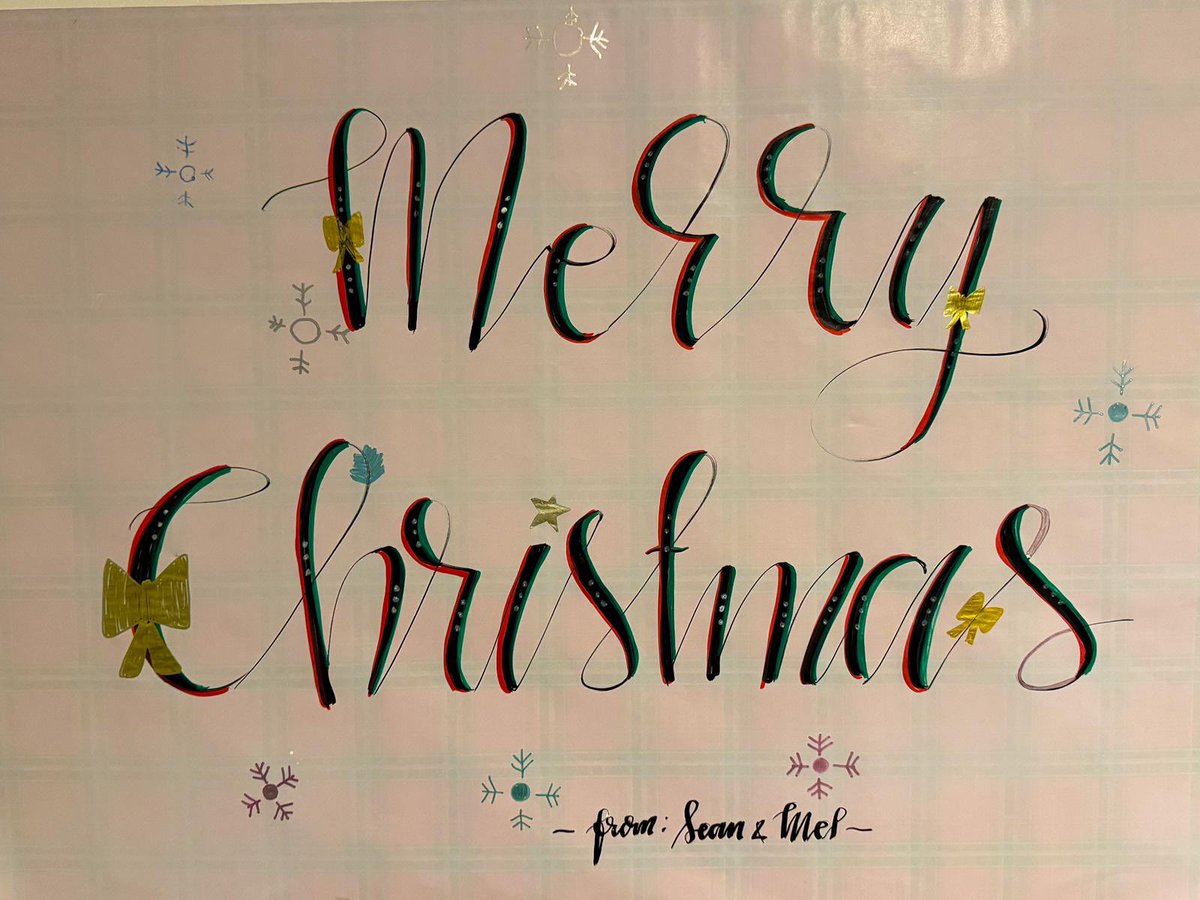 Merry
Christmas
- from: Sean & Mel -